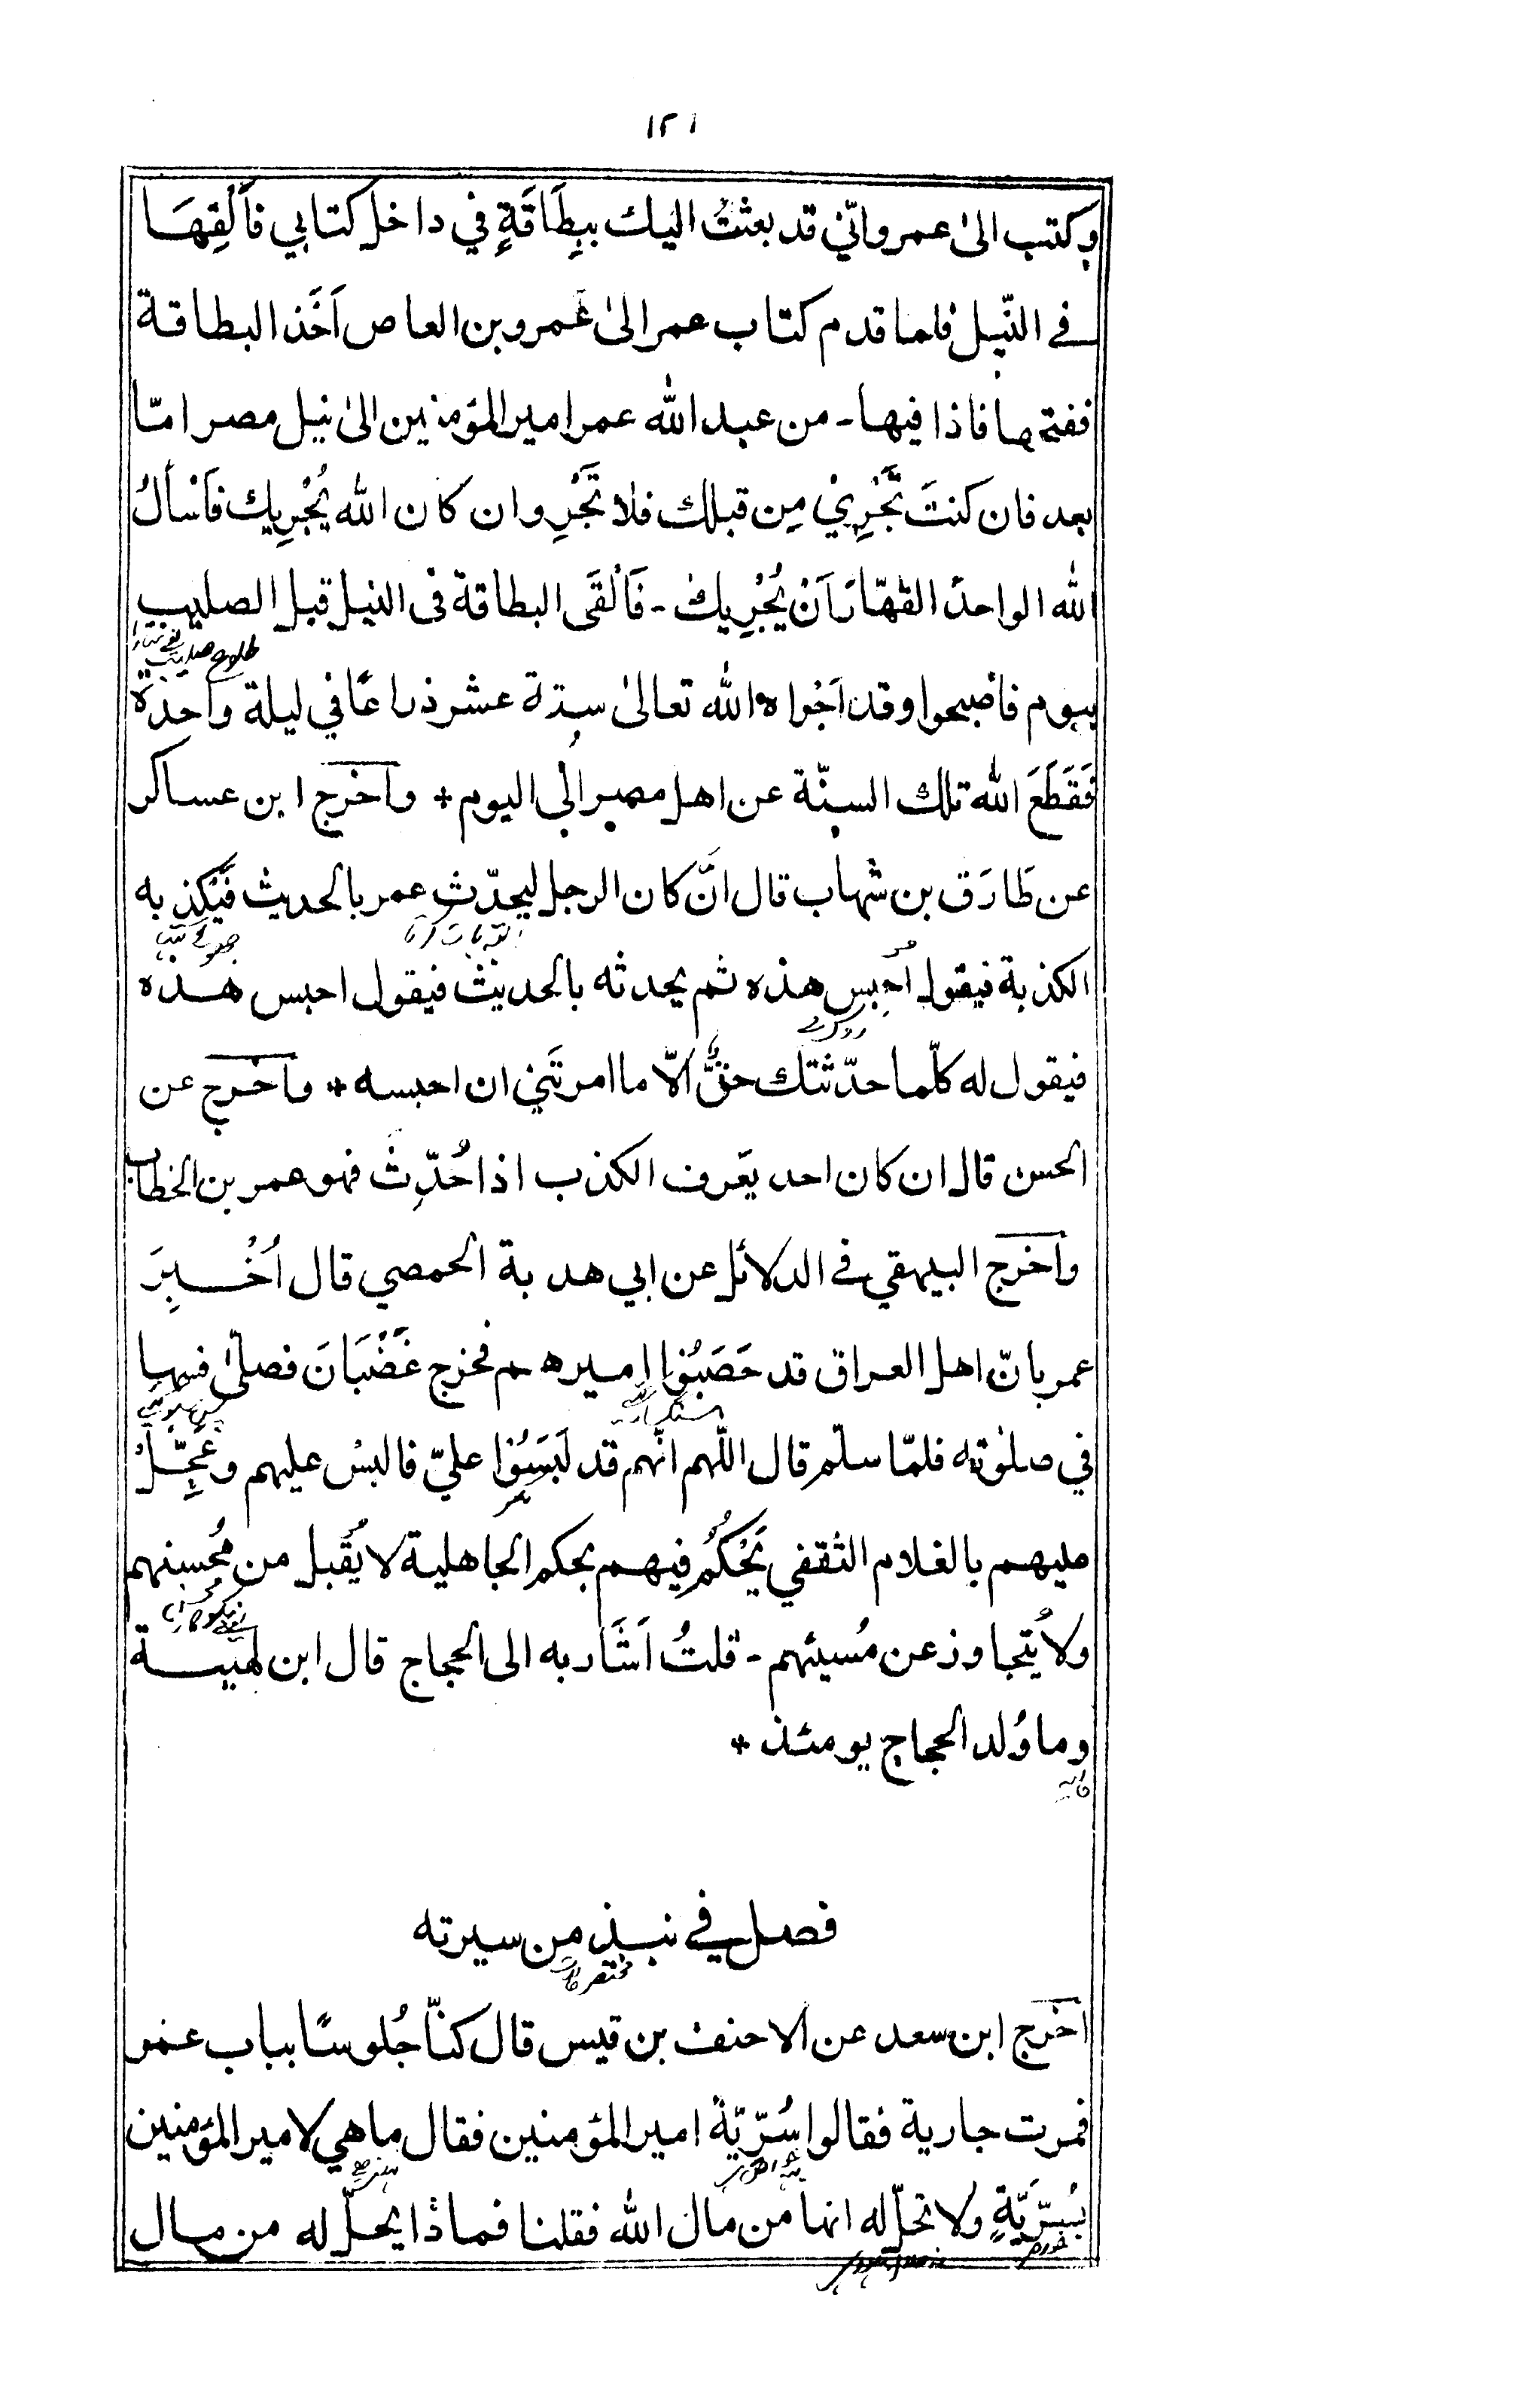 ١٢١
وكتب الىٰ عمرو انّي قد بعثتُ اليك ببِطَاقَةٍ في داخل كتابي فأَلْقِهَا
في النّيل فلما قدم كتاب عمر الىٰ عَمرو بن العاص اَخَذ البطاقة
ففتحها فاذا فيها ـ من عبد الله عمر امير المؤمنين الىٰ نيل مصر امّا
بعد فان كنتَ تَجْرِيْ مِن قبلك فلا تَجْرِ وان كان الله يُجْرِيك فاَسْأَلُ
الله الواحدَ القهّارَ اَنْ يُجْرِيك ـ فَاَلْقَى البطاقة فى النيل قبل الصليب
بيوم فاصبحوا وقد اَجْراه الله تعالىٰ ستة عشر ذراعًا في ليلة واحدة
فَقَطَعَ الله تلك السنّة عن اهل مصر الى اليوم + واخرج ابن عساكر
عن طَارَق بن شهاب قال انْ كان الرجل ليحدّث عمر بالحديث فَيَكْذِبه
الكذبة فيقول اُحبِس هذه ثم يحدثه بالحديث فيقول احبس هذه
فيقول له كلّما حدّثتك حقٌّ اِلّا ما امرتَني ان احبسه + واخرج عن
الحسن قال ان كان احد يَعرف الكذب اذا حُدِّث فهو عمر بن الخطاب
واخرج البيهقي في الدلائل عن ابي هدبة الحمصي قال اُخْبِرَ
عمر بانّ اهل العراق قد حَصَبُوْا اميرهم فخرج غَضْبَانَ فصلّىٰ فسها
في صلٰوته فلمّا سلّم قال اللّٰهم انّهم قد لَبَسَُوْا عليّ فالبسْ عليهم وعَجِّلْ
عليهم بالغلام الثقفي يَحْكُمُ فيهم بحكم الجاهلية لا يُقْبل من مُحْسِنهم
ولا يُتجاوز عن مُسيئهم ـ قلتُ اَشَار به الى الحجاج قال ابن لهيعة
وما وُلد الحجاج يومئذ +
فصل في نبذ من سيرته
اخرج ابن سعد عن الاحنف بن قيس قال كنّا جُلوسًا بباب عمر
فمرت جارية فقالوا سُرِّيّة امير المؤمنين فقال ما هي لامير المؤمنين
بسُرِّيَّةٍ ولا تحلّ له انها من مال الله فقلنا فماذا يحلّ له من مال